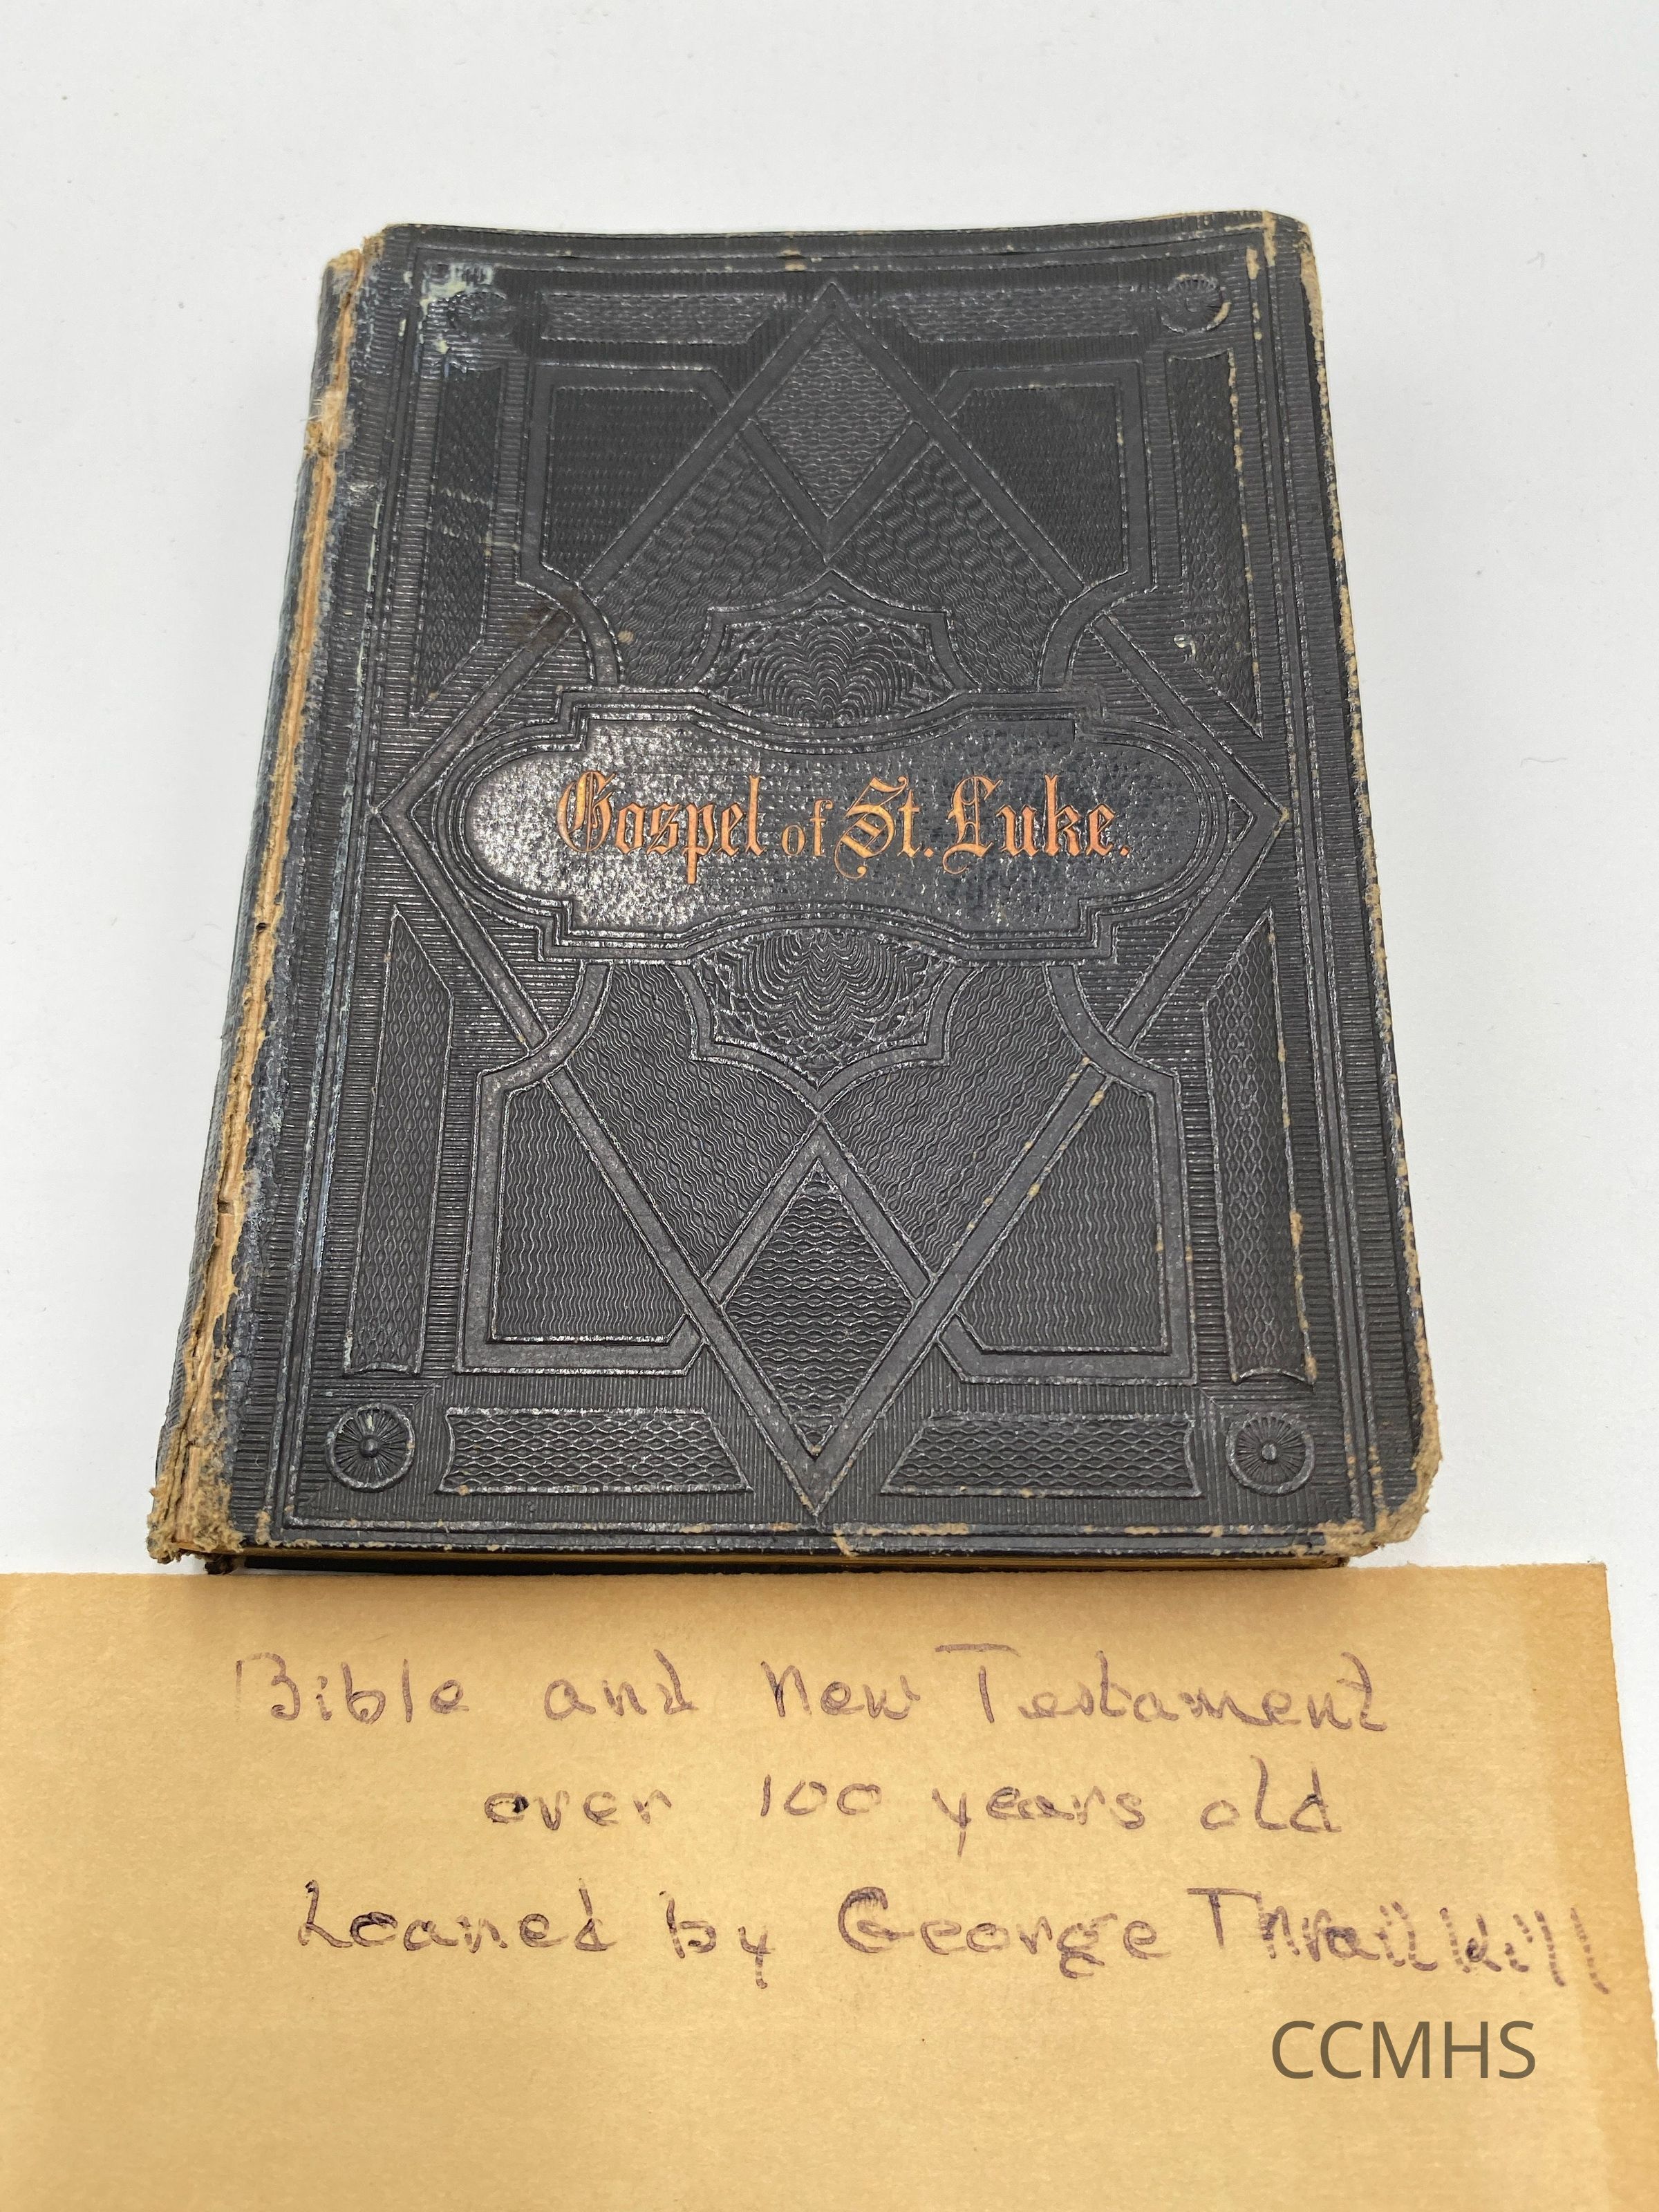 Gospel of St. Luke.
Bible and New Testament
over 100 years old
Loaned by George Thrailkill
CCMHS